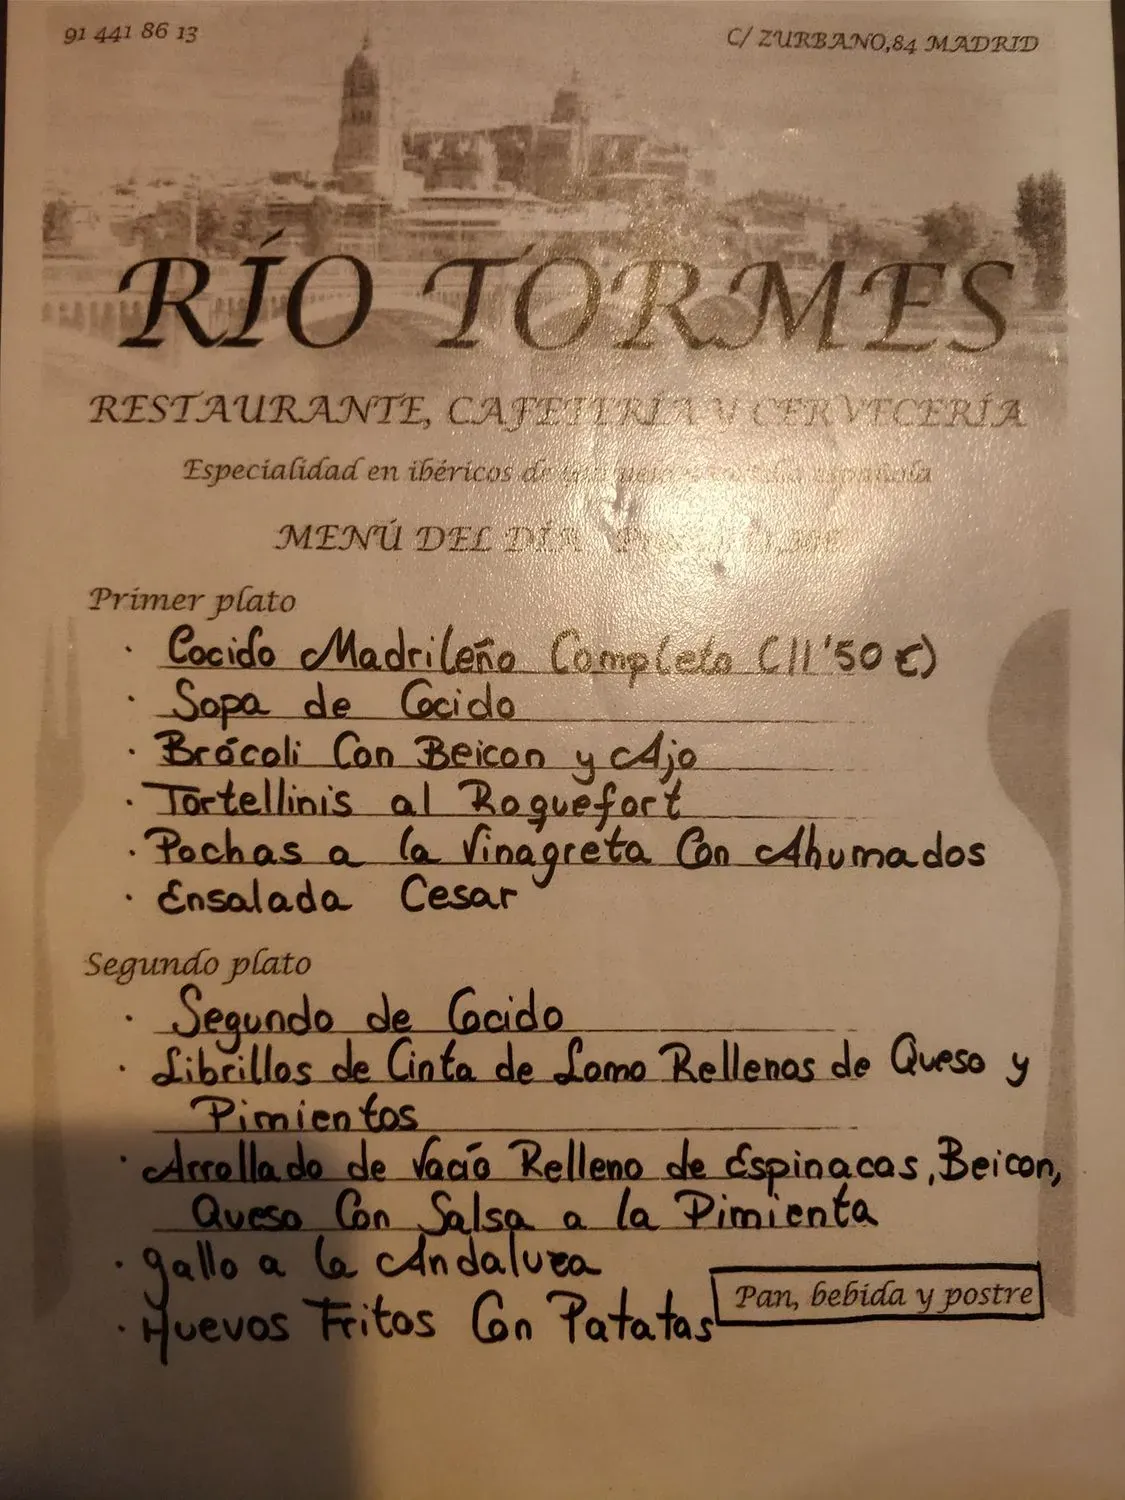 91 441 86 13
C/ ZURBANO,84 MADRID
RÍO TORMES
RESTAURANTE, CAFETERÍA Y CERVECERÍA
Especialidad en ibéricos de española
MENÚ DEL DÍA
Primer plato
· Cocido Madrileño Completo (11'50 €)
· Sopa de Cocido
· Brócoli Con Beicon y Ajo
· Tortellinis al Roquefort
· Pochas a la Vinagreta Con Ahumados
· Ensalada Cesar
Segundo plato
· Segundo de Cocido
· Librillos de Cinta de Lomo Rellenos de Queso y
Pimientos
· Arrollado de Vacío Relleno de Espinacas, Beicon,
Queso Con Salsa a la Pimienta
· Gallo a la Andaluza
· Huevos Fritos Con Patatas
Pan, bebida y postre